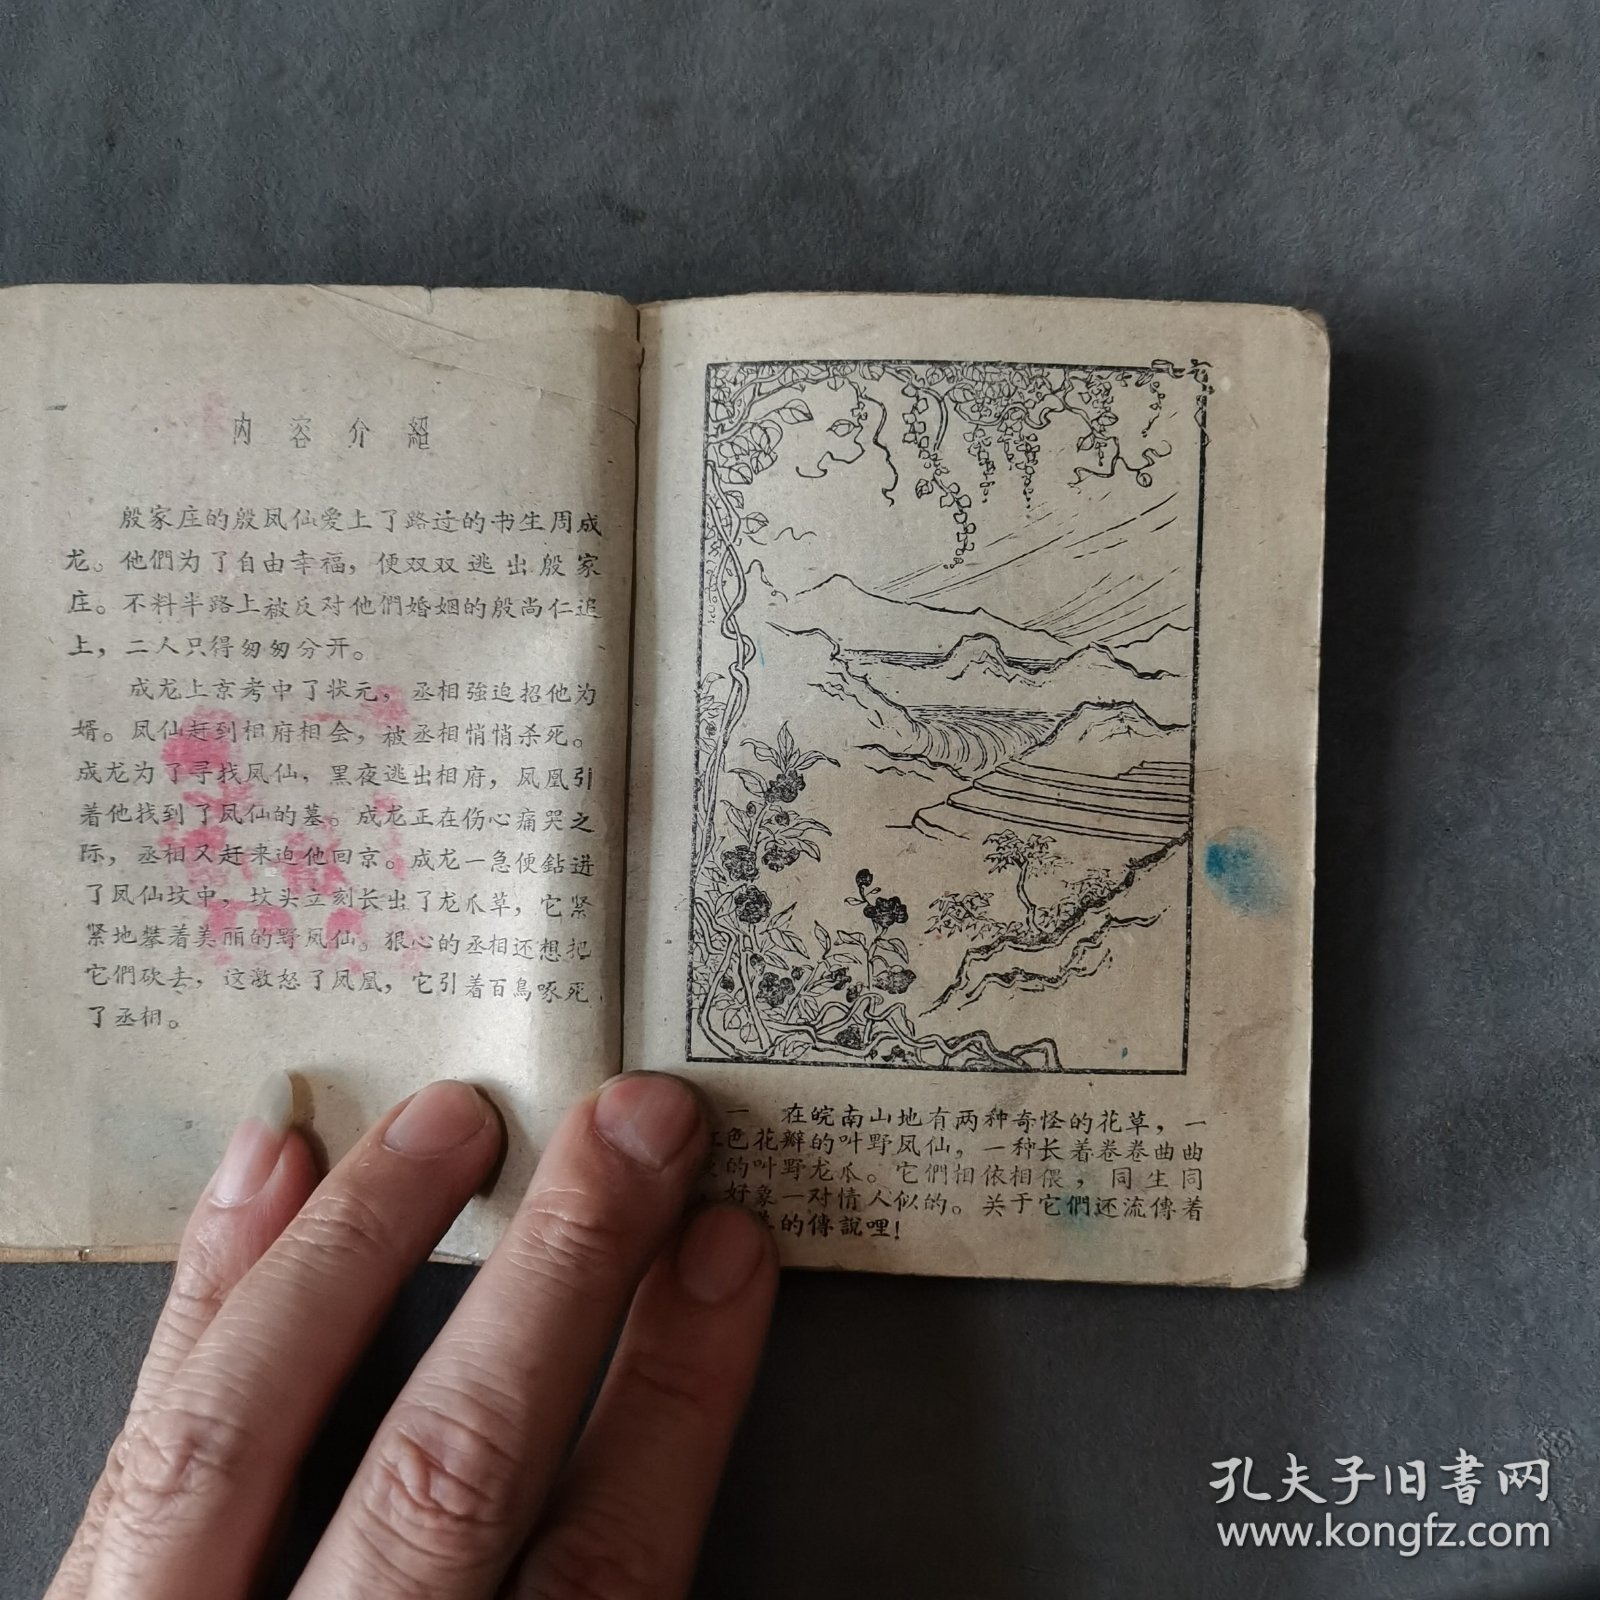 内容介紹
殷家庄的殷凤仙爱上了路过的书生周成
龙。他們为了自由幸福，便双双逃出殷家
庄。不料半路上被反对他們婚姻的殷尚仁追
上，二人只得匆匆分开。
成龙上京考中了状元，丞相強迫招他为
婿。凤仙赶到相府相会，被丞相悄悄杀死。
成龙为了寻找凤仙，黑夜逃出相府，凤凰引
着他找到了凤仙的墓。成龙正在伤心痛哭之
际，丞相又赶来迫他回京。成龙一急便鉆进
了凤仙坟中，坟头立刻长出了龙爪草，它紧
紧地攀着美丽的野凤仙。狠心的丞相还想把
它們砍去，这激怒了凤凰，它引着百鳥啄死
了丞相。
一 在皖南山地有两种奇怪的花草，一
红色花瓣的叫野凤仙，一种长着卷卷曲曲
的叫野龙爪。它們相依相偎，同生同
，好象一对情人似的。关于它們还流傳着
的傳說哩！
孔夫子旧書网
www.kongfz.com